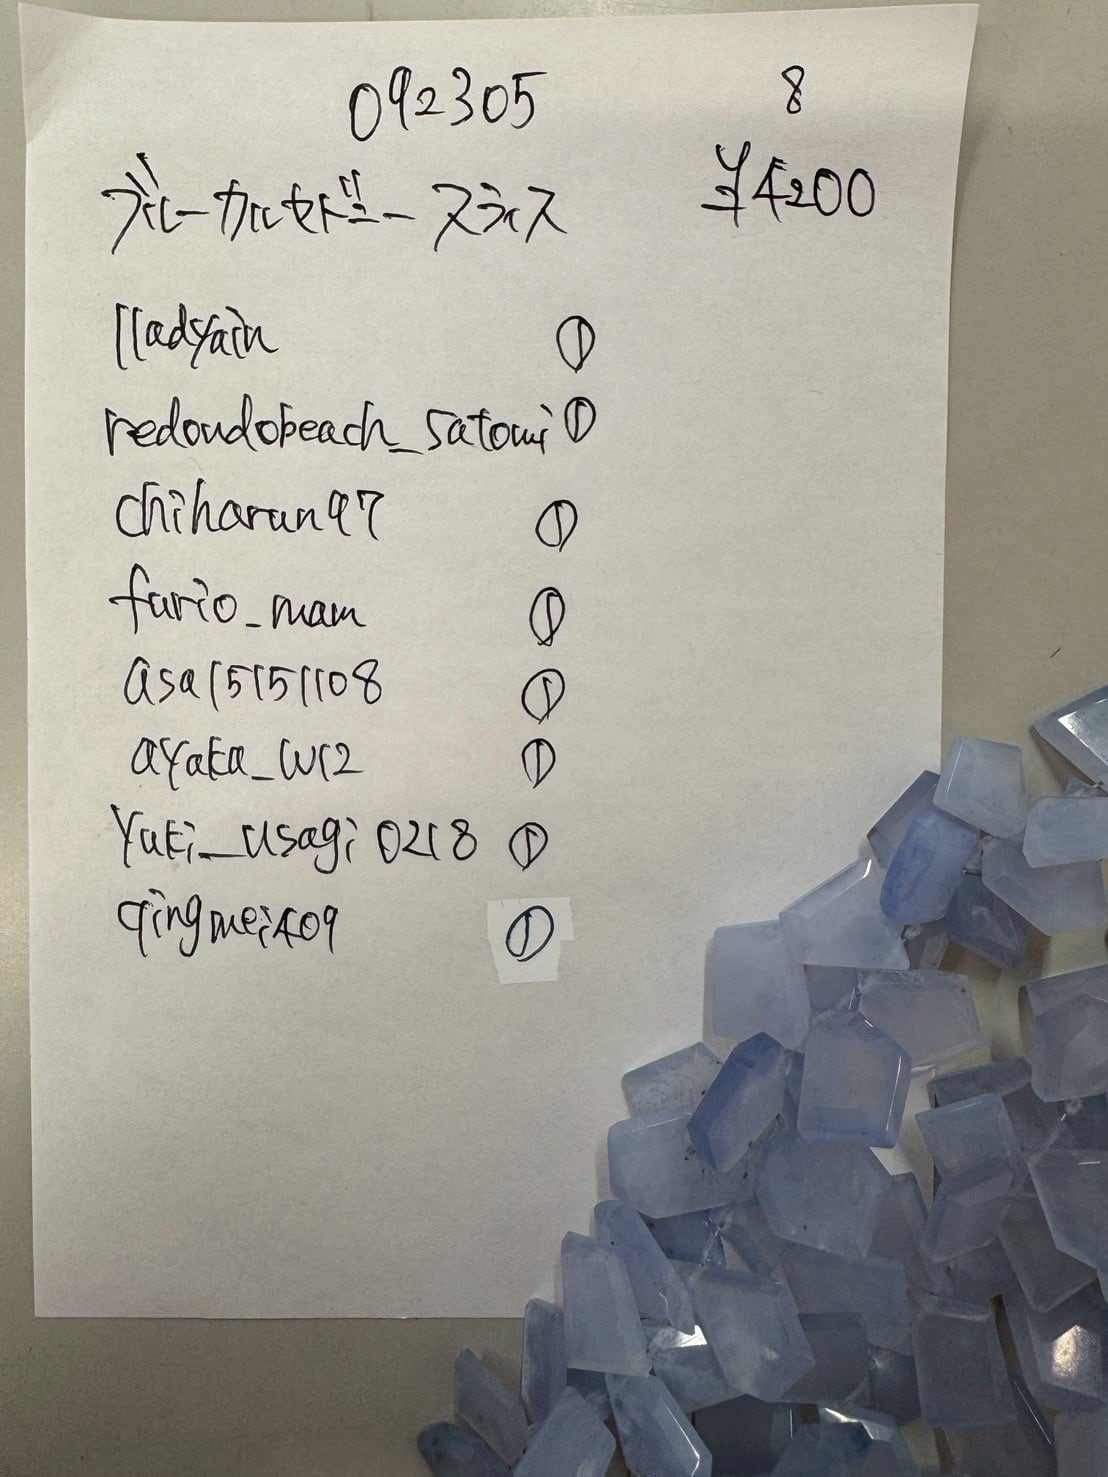 092305 8
ブルーカルセドニースライス ¥4200
lladyain ①
redondobeach_satomi ①
chiharun97 ①
furio_mam ①
asa15151108 ①
ayaka_w12 ①
yuki_usagi0218 ①
qingmei409 ①